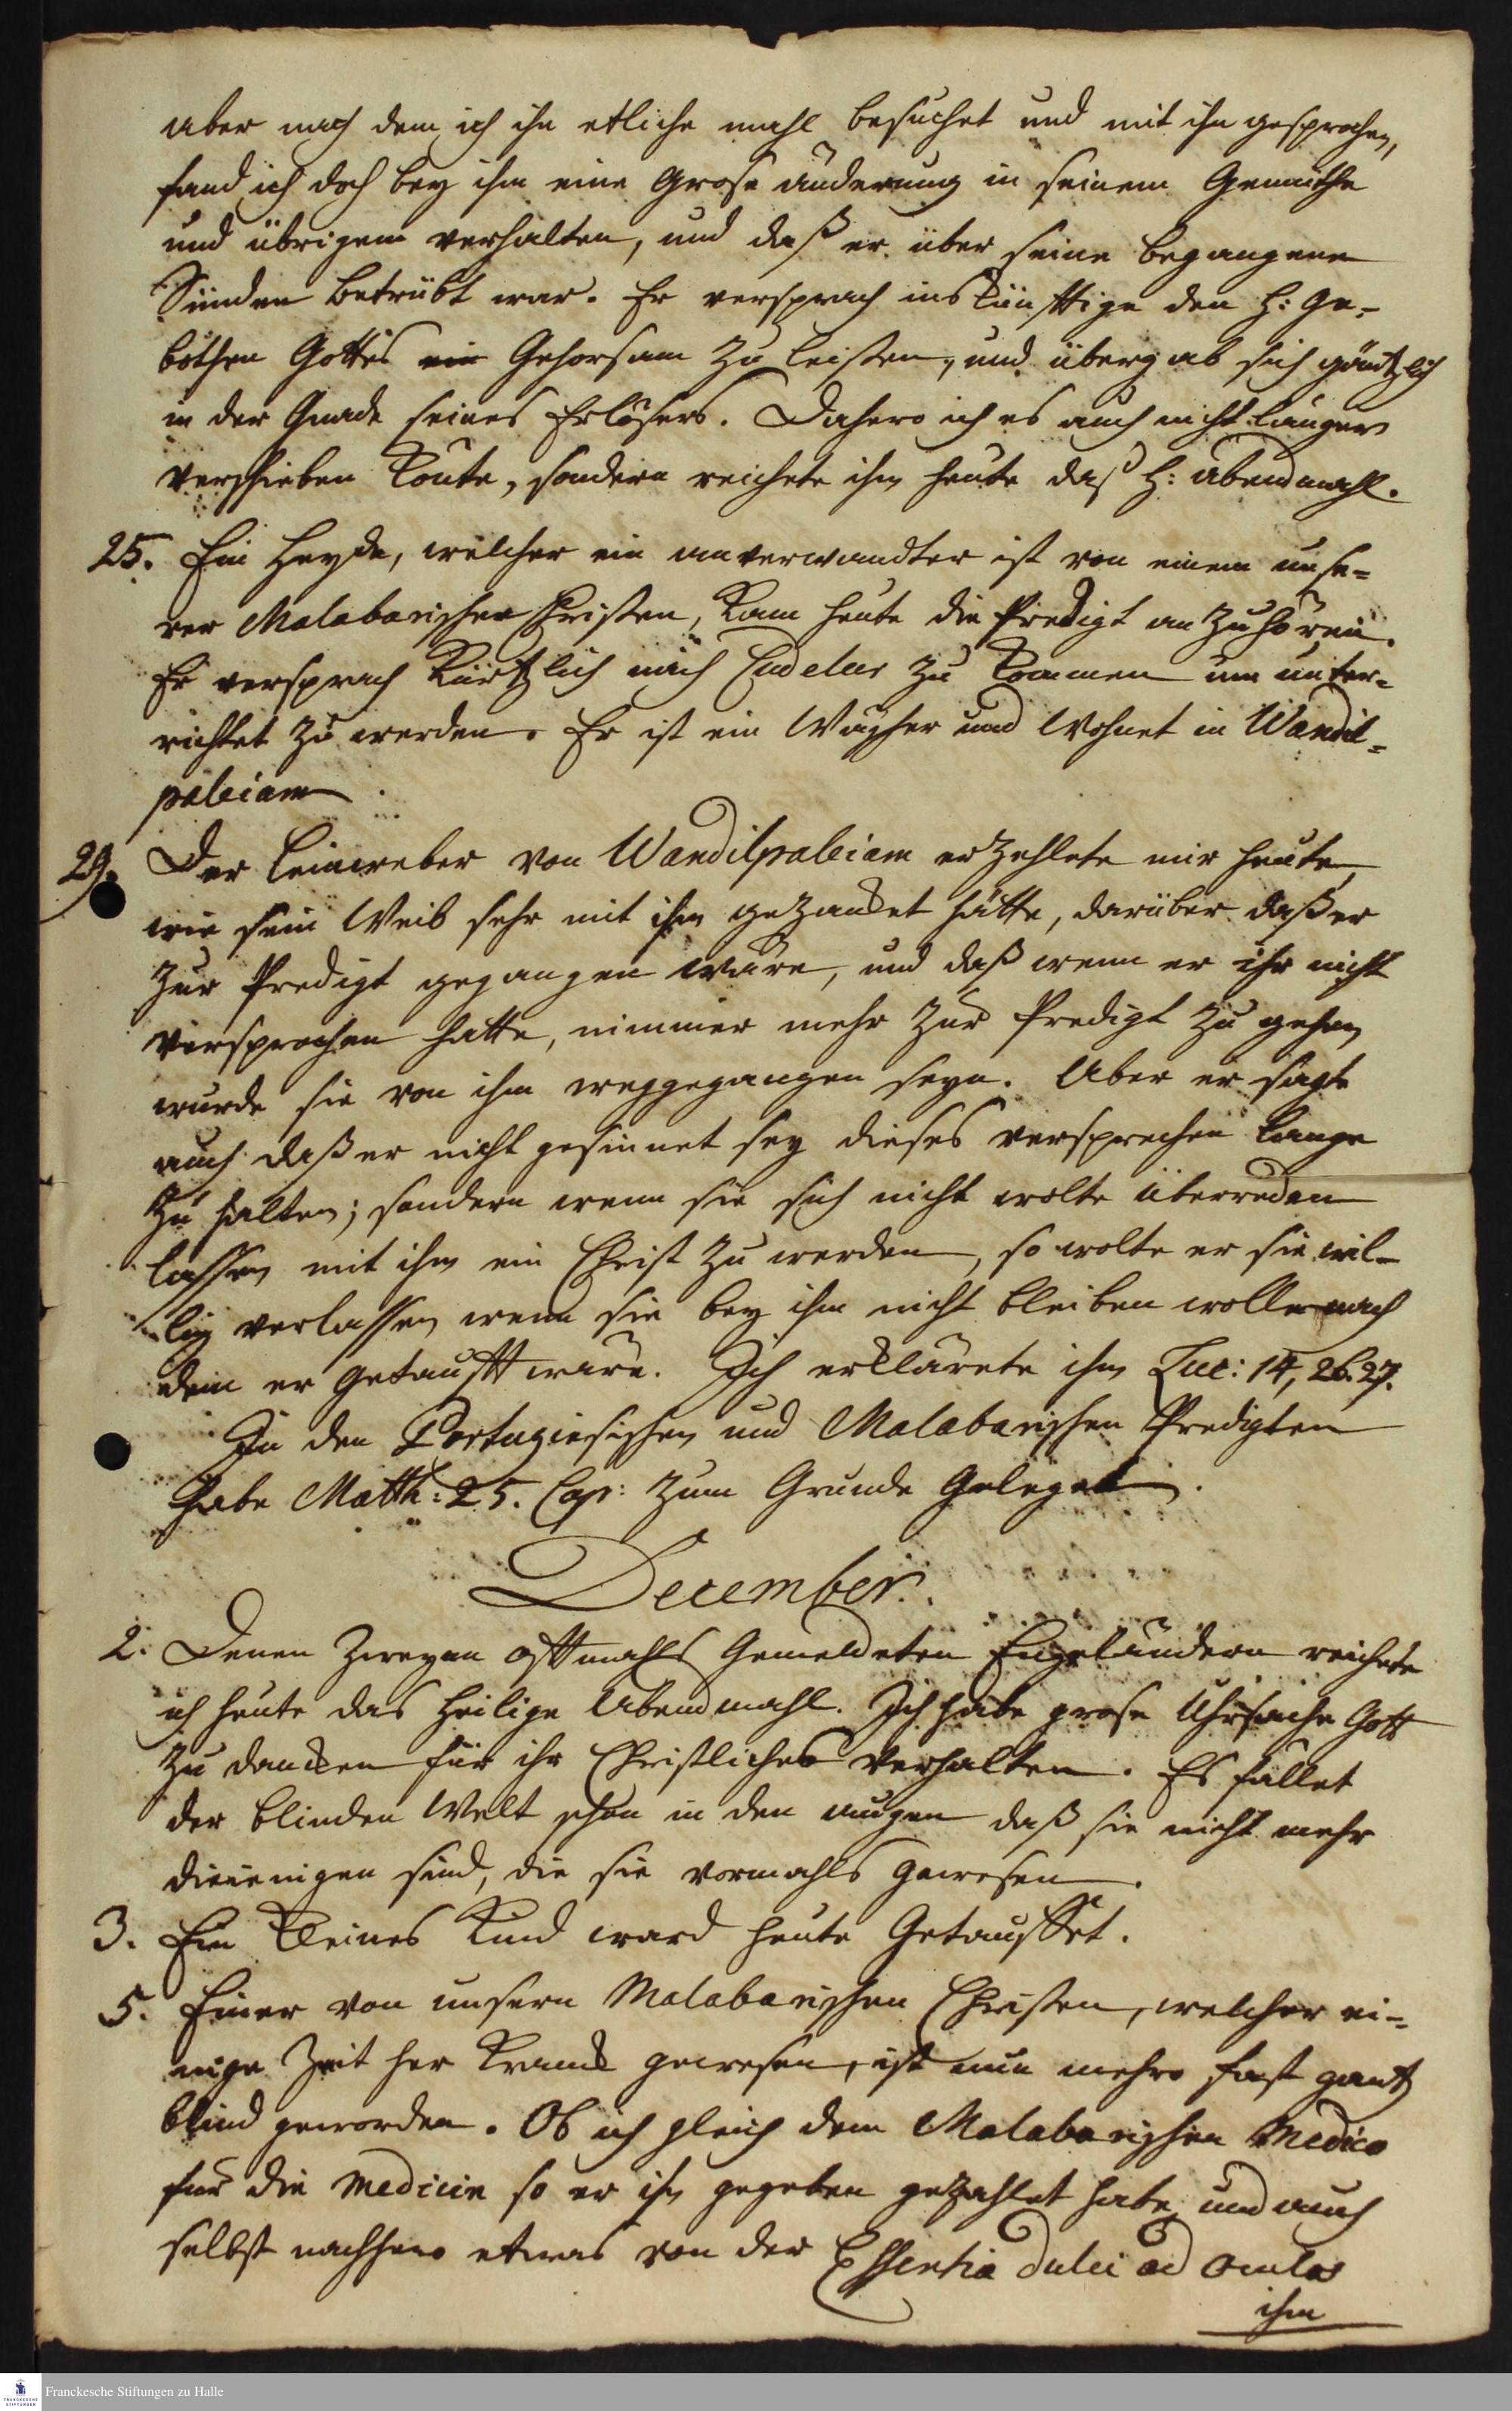 aber nach dem ich ihn etliche mahl besuchet und mit ihn gesprochen,
fand ich doch bey ihm eine Grose änderung in seinem Gemüthe
und übrigem verhalten, und daß er über seine begangene
Sünden betrübt war. Er versprach inskünfftige den H: Ge-
bothen Gottes ein Gehorsam zu leisten, und übergab sich gäntzlich
in der Gnade seines Erlösers. Dahero ich es auch nicht länger
verschieben konte, sondern reichete ihm heute daß H: abendmahl.
25. Ein Heyde, welcher ein anverwandter ist von einem unse-
rer Malabarischen Christen, kam heute die Predigt an zuhören.
Er versprach kürtzlich nach Cudelur zu kommen um unter-
richtet zu werden. Er ist ein Wäscher und Wohnet in Wandil-
paleiam.
29. Der leinweber von Wandilpaleiam erzehlete mir heute,
wie sein Weib sehr mit ihm gezancket hätte, darüber daß er
zur Predigt gegangen wäre, und daß wenn er ihr nicht
versprochen hatte, nimmer mehr zur Predigt zu gehen
wurde sie von ihm weggegangen seyn. Aber er sagte
auch daß er nicht gesinnet sey dieses versprechen lange
zu halten; sondern wenn sie sich nicht wolte überreden
lassen mit ihm ein Christ zu werden, so wolte er sie wil-
lig verlassen wenn sie bey ihm nicht bleiben wolle nach
dem er getaufft wäre. Ich erklärete ihm Luc: 14, 26.27.
In den Portugiesischen und Malabarischen Predigten
habe Matth: 25. Cap: zum Grunde Geleget.
December.
2. Denen zweyen offtmahls Gemeldeten Engeländern reichete
ich heute das heilige Abendmahl. Ich habe grose Uhrsache Gott
zu dancken für ihr Christliches Verhalten. Es fället
der blinden Welt schon in den augen daß sie nicht mehr
dieienigen sind, die sie vormahls gewesen.
3. Ein kleines Kind ward heute Getauffet.
5. Einer von unsern Malabarischen Christen, welcher ei-
nige Zeit her kranck gewesen, ist nun mehro fast gantz
blind geworden. Ob ich gleich dem Malabarischen Medico
für die Medicin so er ihm gegeben gezahlet habe und auch
selbst nachhero etwas von der Essentia dulci ad oculos
ihm
Franckesche Stiftungen zu Halle